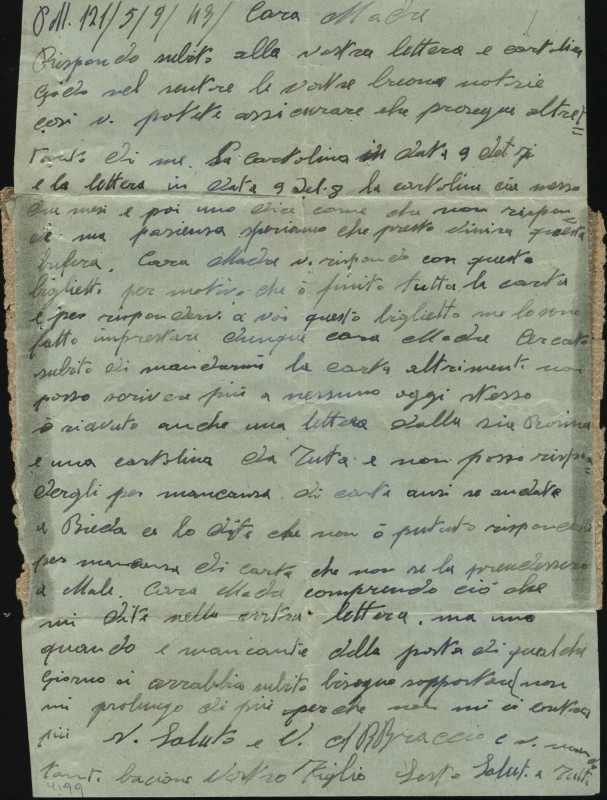 P.M. 121/5/9/43/ Cara Madre
Rispondo subito alla vostra lettera e cartolina
Godo nel sentire le vostre buona notizie
cosi v. potete assicurare che prosegue altret
tanto di me. La cartolina in data 9 del 7
e la lettera in data 9 del 8 la cartolina cia messo
due mesi e poi uno dice come che non rispon
de ma pasiensa speriamo che presto finira questa
bufera. Cara Madre v. rispondo con questo
biglietto per motivo che ò finito tutta la carta
e per rispondervi a voi questo biglietto me lo sono
fatto imprestare dunque cara Madre Cercate
subito di mandarmi la carta altrimenti non
posso scrivere più a nessuno oggi stesso
ò riavuto anche una lettera dalla zia Rosina
e una cartolina da Tuta e non posso rispon
dergli per mancansa di carta ansi se andate
a Bieda ce lo dite che non ò pututo rispondere
per mancansa di carta che non se la prendessero
a Male. Cara Madre comprendo ciò che
mi dite nella vostra lettera, ma uno
quando e mancante della posta di qualche
Giorno si arrabbia subito bisogna sopportare non
mi prolungo di più perche non mi ci entra
più V. Saluto e V. A BBraccio e v. mando
tanti bacioni Vostro Figlio Sesto Saluti a Tutti
4199